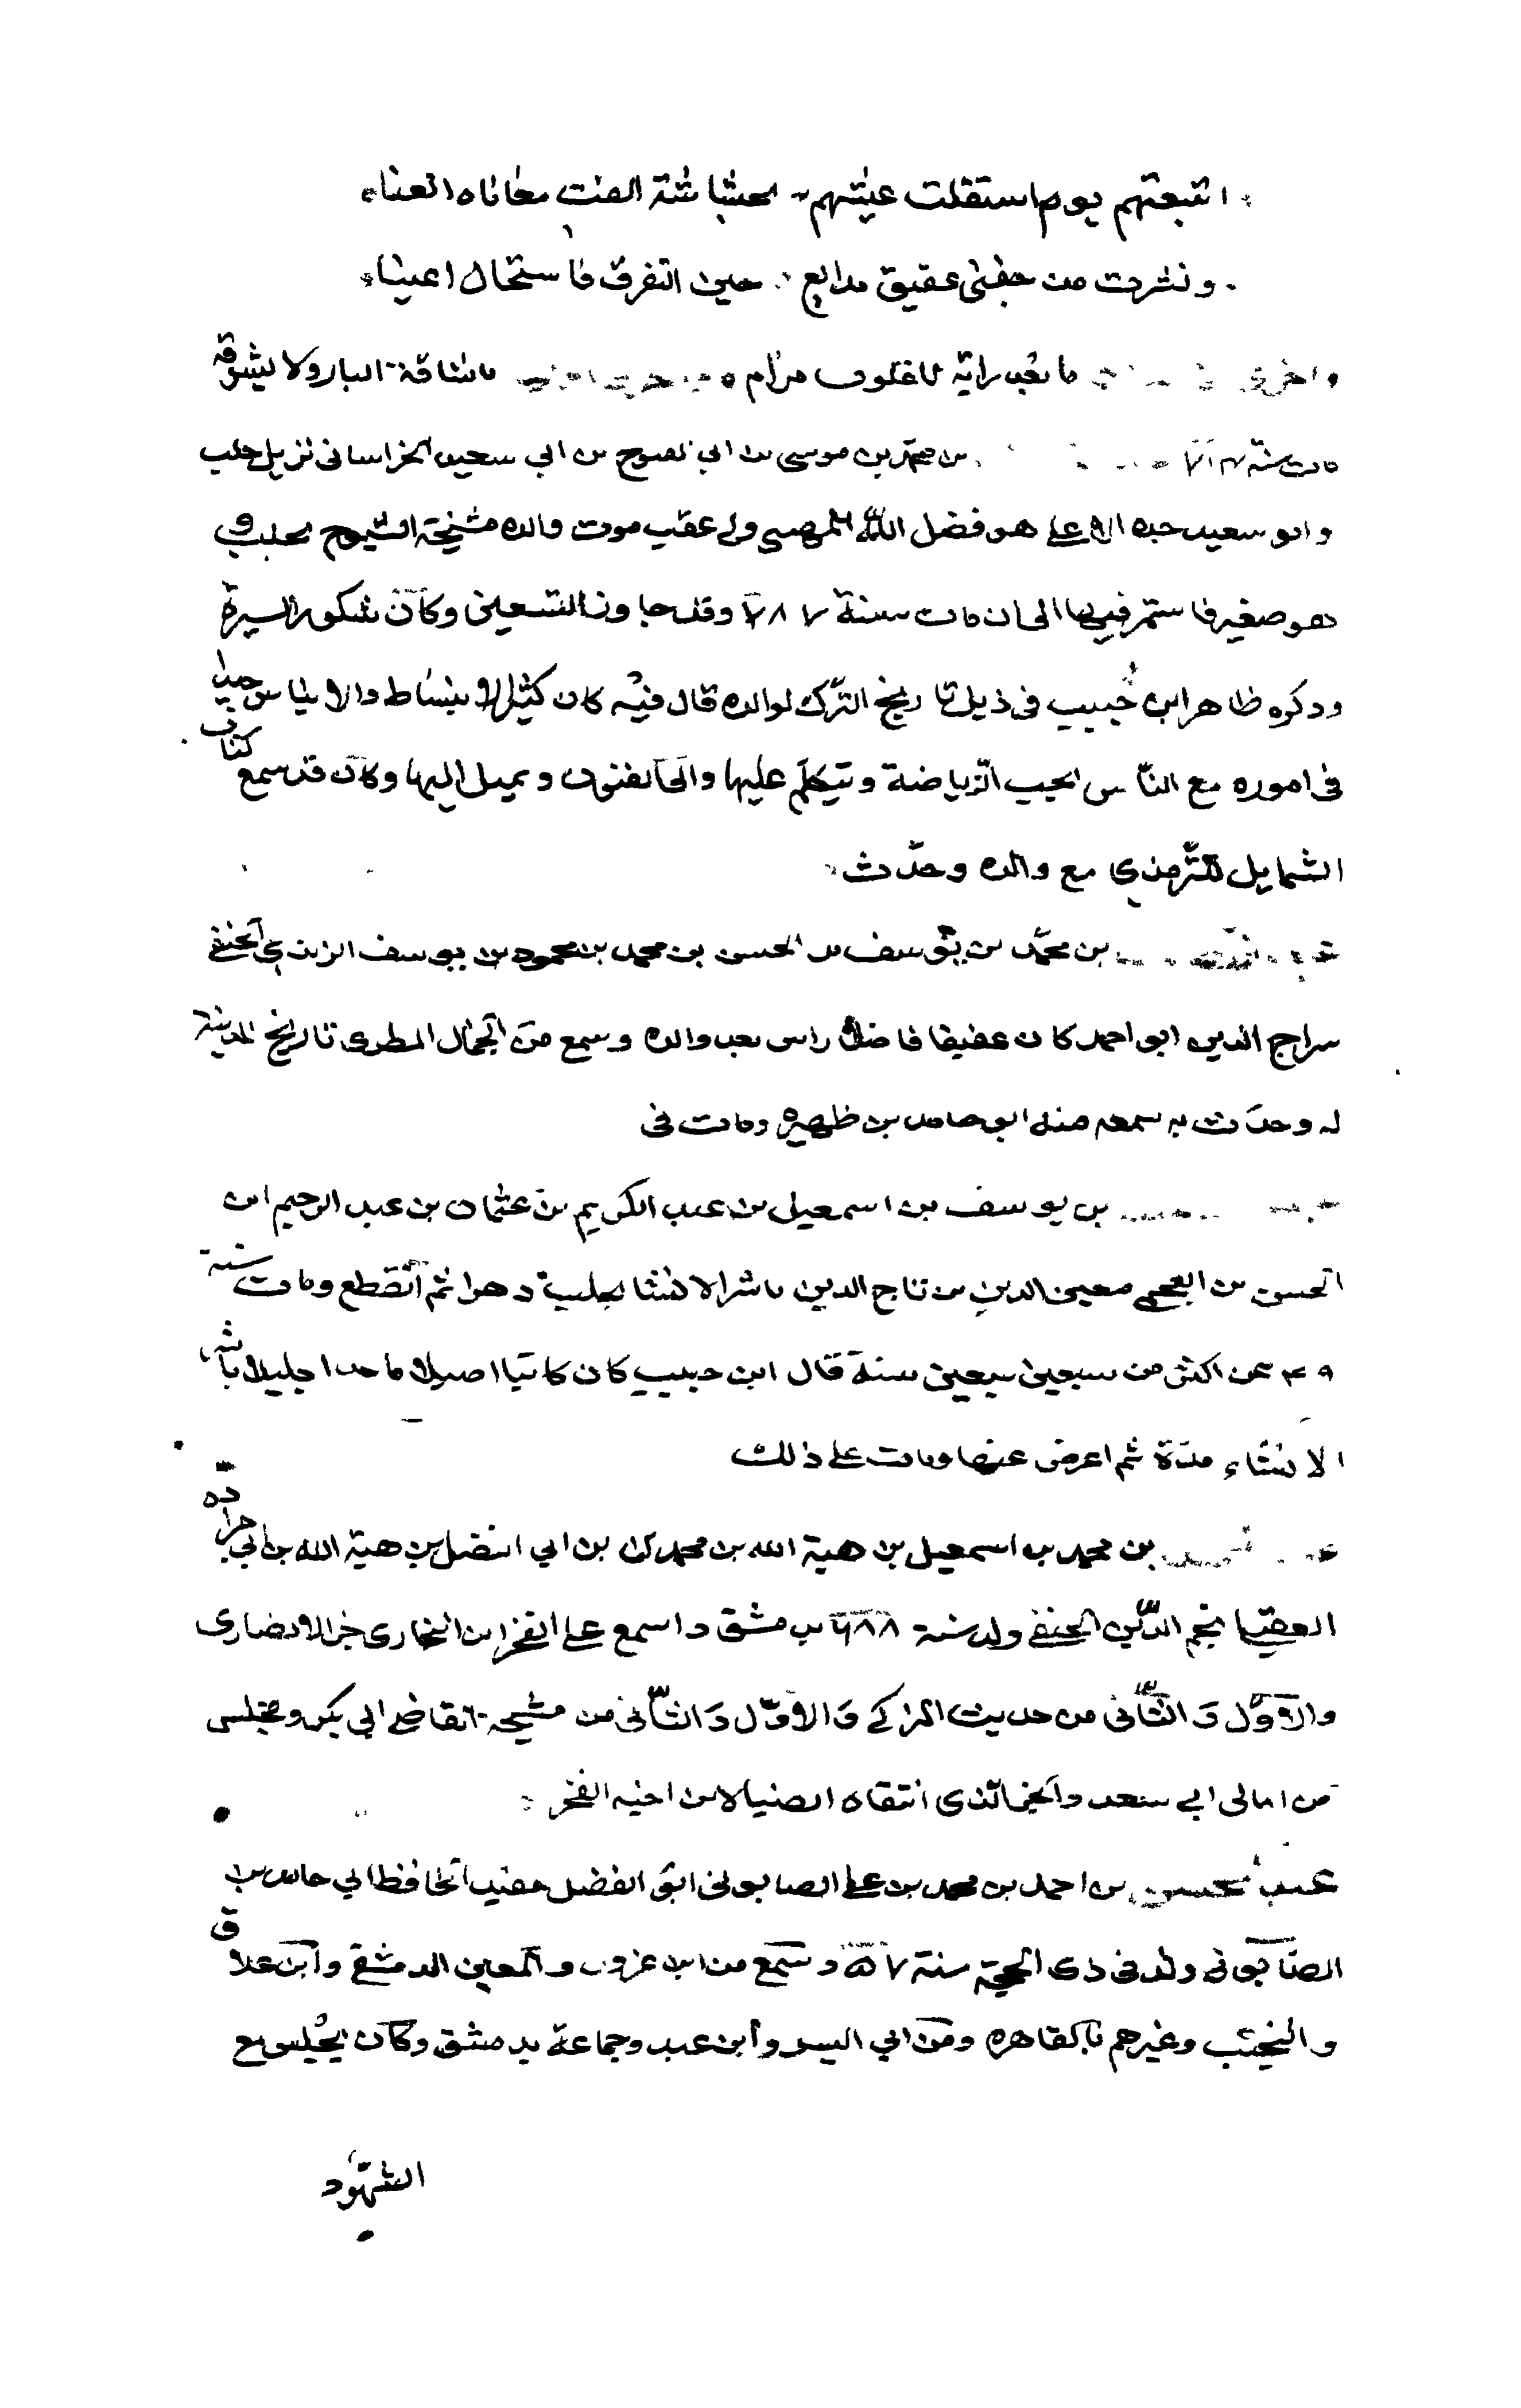 اتبعتهم يوم استقلت عيشهم بحشاشة الفت معاناه العناء
ونثرت من جفني عقيق مدامع حين التفرق فاستحال اعيناء
ما بعد رامة للقلوب مرام ما شاقه البان ولا يشوقه
مات سنة بن محمد بن موسى بن ابي نصوح بن ابي سعيد الخراساني نزيل حلب
وابو سعيد جده الاعلى هو فضل الله المهيني ولي عقب موت والده مشيخة الشيوخ بحلب و
هو صغير فاستمر فيها الى ان مات سنة ٧٨٧ وقد جاوز التسعين وكان مشكور السيرة
وذكره طاهر ابن حبيب في ذيل تاريخ الترك لوالده قال فيه كان كثير الانبساط والايناس جيدا
في اموره مع الناس يحب الرياضة ويتكلم عليها والى الفنون ويميل اليها وكان قد سمع كتاب
الشمايل للترمذي مع والده وحدّث
بن محمّد بن يوسف بن الحسن بن محمد بن محمود بن يوسف الزرندي الحنفي
سراج الدين ابو احمد كان عفيفا فاضلا راس بعد والده وسمع من الجمال المطري تاريخ المدينة
له وحدّث به سمعه منه ابو حامد بن ظهيره ومات في
بن يوسف بن اسمعيل بن عبد الكريم بن عثمان بن عبد الرحيم ابن
الحسن بن العجمي معين الدين بن تاج الدين باشر الانشا بحلب دهرا ثم انقطع ومات سنة
عن اكثر من سبعين سبعين سنة قال ابن حبيب كان كاتبا اصيلا ماجدا جليلا باشر
الانشاء مدّة ثم اعرض عنها ومات على ذلك
بن محمد بن اسمعيل بن هبة الله بن محمد بن ابي الفضل بن هبة الله بن ابي جراده
العقيلي نجم الدّين الحنفي ولد سنة ٦٨٨ بدمشق واسمع على الفخر ابن البخاري جزء الانصاري
والاوّل والثّاني من حديث المزكي والاوّل والثّاني من مشيخة القاضي ابي بكر ومجلس
من امالي ابي سعد والجزء الذي انتقاه الضيا لابن اخيه الفخر
عبد المحسن بن احمد بن محمد بن علي الصابوني ابو الفضل حفيد الحافظ ابي حامد بن
الصّابوني ولد في ذي الحجة سنة ٦٥٧ وسمع من ابن عزون والمعين الدمشقي وابن علاق
والنجيب وغيرهم بالقاهره ومن ابي اليسر وابن عبد وجماعة بدمشق وكان يجلس مع
الشهود